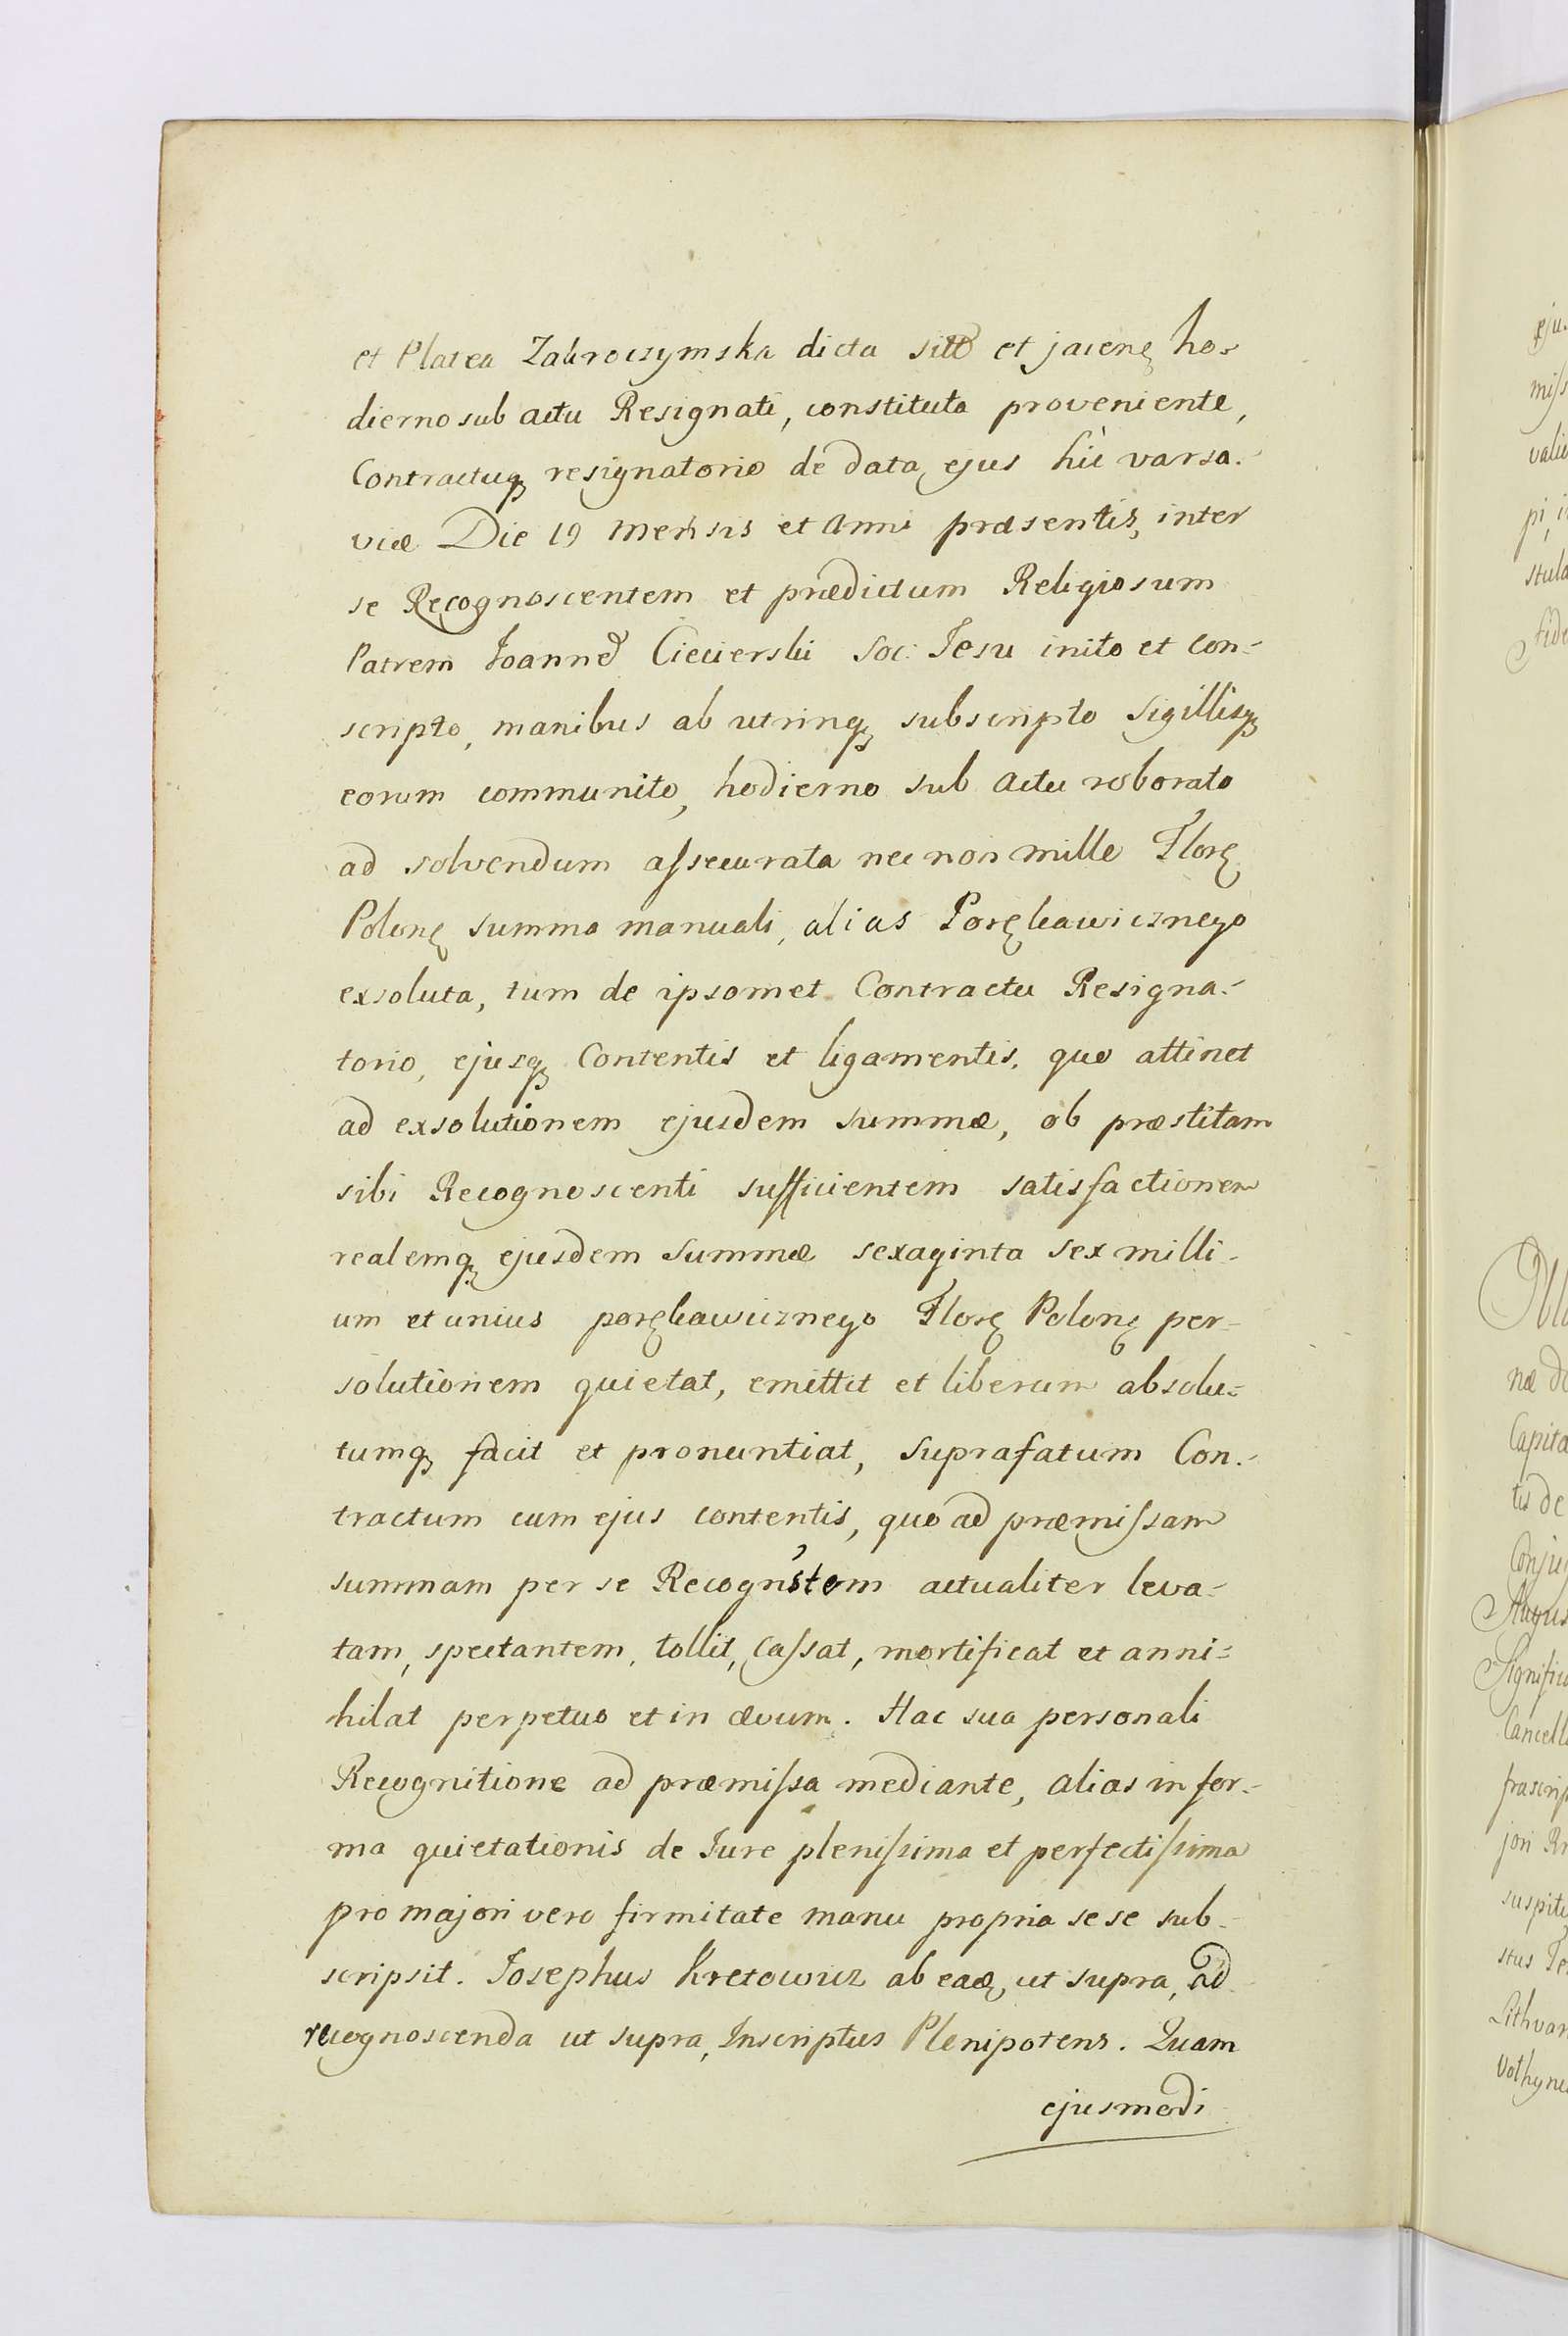 et Platea Zakroczymska dicta sitt et jacenę ho-
dierno sub actu Resignati, constituta proveniente,
Contractuqȝ resignatorio de data ejus hìc varsa-
viæ Die 19 Mensis et Anni præsentis, inter
se Recognoscentem et prædictum Religiosum
Patrem Joannē Ciecierski Soc: Jesu inito et con-
scripto, manibus ab utrinqȝ subscripto Sigillisqȝ
eorum communito, hodierno sub Actu roborato
ad solvendum aſsecurata nec non mille Florę
Polonę summa manuali, alias Porękawicznego
exsoluta, tum de ipsomet Contractu Resigna-
torio, ejusqȝ Contentis et ligamentis, quo attinet
ad exsolutionem ejusdem summæ, ob præstitam
sibi Recognoscenti sufficientem satisfactionem
realemqȝ ejusdem Summæ sexaginta sex milli-
um et unius porękawicznego Florę Polonę per-
solutionem quietat, emittit et liberum absolu-
tumqȝ facit et pronuntiat, Suprafatum Con-
tractum cum ejus contentis, quo ad præmiſsam
summam per se Recognstem actualiter leva-
tam, spectantem, tollit, Caſsat, mortificat et anni-
hilat perpetuo et in ævum. Hac sua personali
Recognitione ad præmiſsa mediante, alias in for-
ma quietationis de Jure pleniſsima et perfectiſsima
pro majori vero firmitate manu propria sese sub-
scripsit. Josephus Kretowicz ab eadȩ ut supra, ad
recognoscenda ut supra, Inscriptus Plenipotens. Quam
ejusmodi
eju-
miſs
valid
pi, i
stula
fide
næ do
Capita
tis de
Conju
Augus
Significa
Cancella
frascrip
jori
suspit
stus
Lithuan
Volhyn